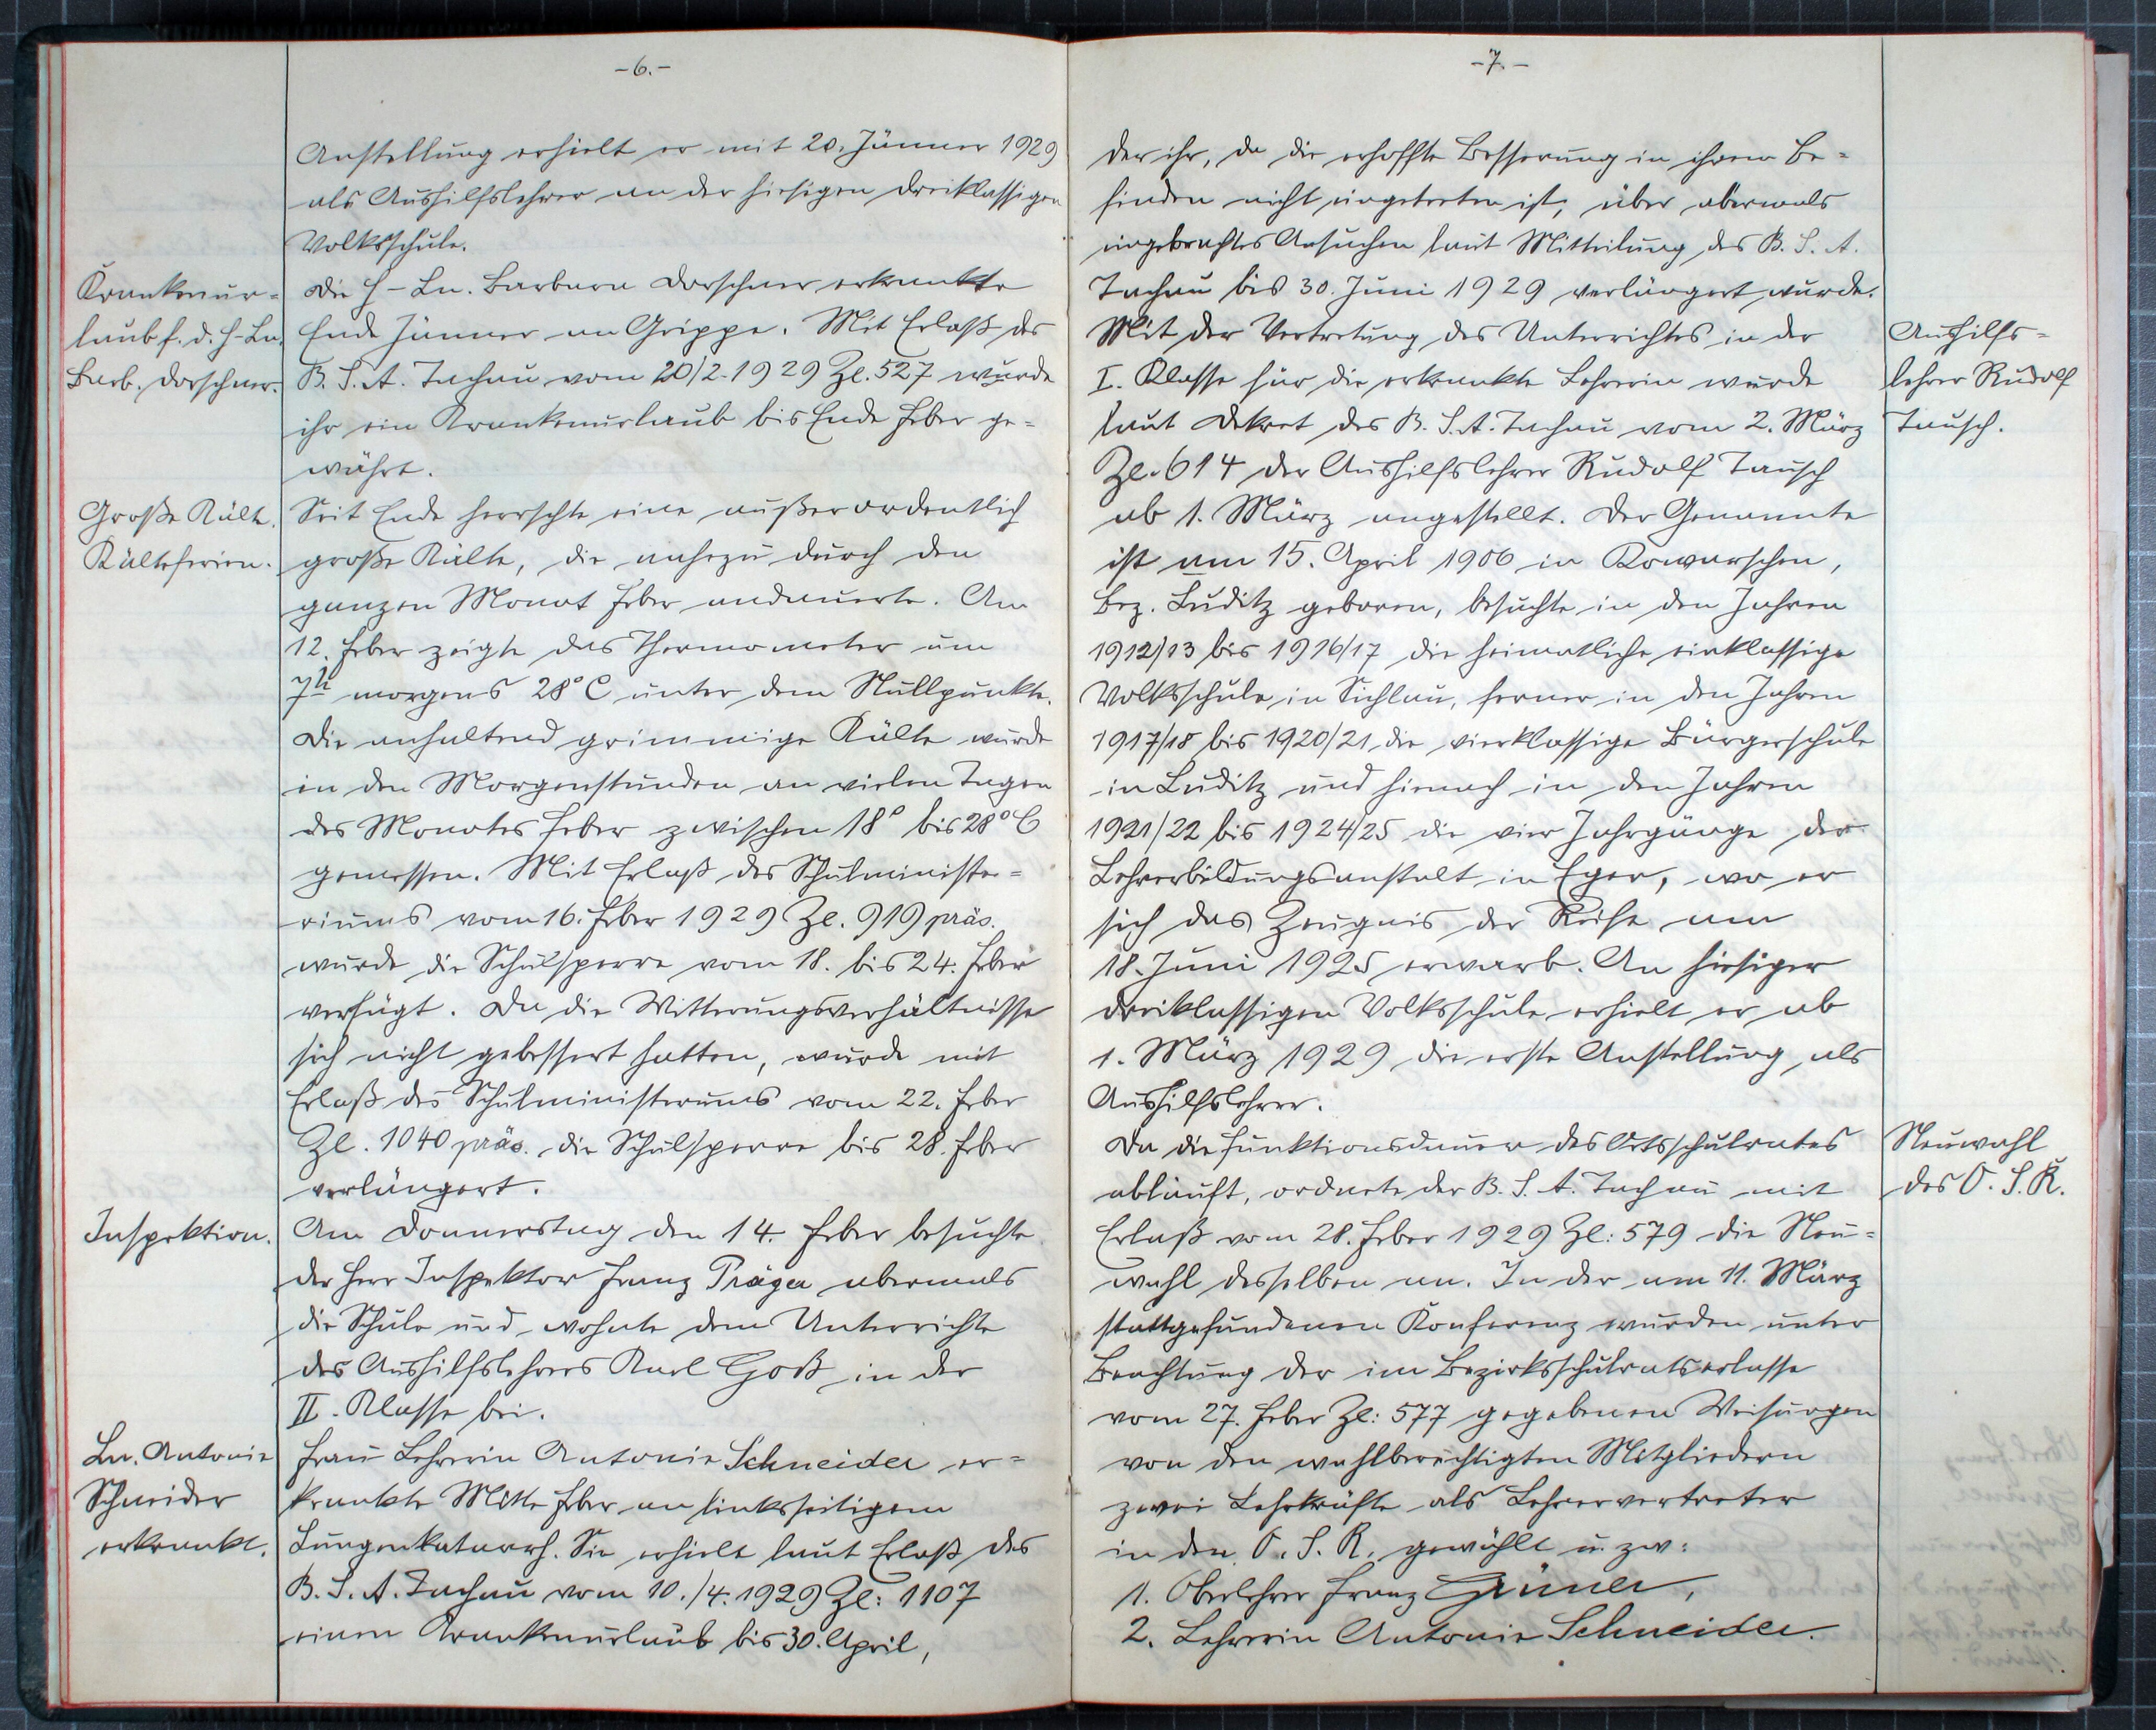 -6.-
Anstellung erhielt er mit 20. Jänner 1929
als Aushilfslehrer an der hiesigen dreiklassigen
Volksschule.
Krankenur=
laub f. d. H-Ln.
Barb. Dorschner.
Die H-Ln. Barbara Dorschner erkrankte
Ende Jänner an Grippe. Mit Erlaß des
B. S. A. Tachau vom 20/2. 1929 Zl. 527 wurde
ihr ein Krankenurlaub bis Ende Feber ge=
währt.
Große Kälte.
Kälteferien.
Seit Ende herrschte eine außerordentlich
große Kälte, die nahezu durch den
ganzen Monat Feber andauerte. Am
12. Feber zeigte das Thermometer um
7h morgens 28° C unter dem Nullpunkte.
Die anhaltend grimmige Kälte wurde
in den Morgenstunden an vielen Tagen
des Monates Feber zwischen 18° bis 28° C
gemessen. Mit Erlaß des Schulministe=
riums vom 16. Feber 1929 Zl. 919 präs.
wurde die Schulsperre vom 18. bis 24. Feber
verfügt. Da die Witterungsverhältnisse
sich nicht gebessert hatten, wurde mit
Erlaß des Schulministeriums vom 22. Feber
Zl. 1040 präs. die Schulsperre bis 28. Feber
verlängert.
Inspektion.
Am Donnerstag den 14. Feber besuchte
der Herr Inspektor Franz Präger abermals
die Schule und wohnte dem Unterrichte
des Aushilfslehrers Karl Goß in der
II. Klasse bei.
Ln. Antonie
Schneider
erkrankt.
Frau Lehrerin Antonie Schneider er=
krankte Mitte Feber an linksseitigem
Lungenkatarrh. Sie erhielt laut Erlaß des
B. S. A. Tachau vom 10./4. 1929 Zl: 1107
einen Krankenurlaub bis 30. April,
-7.-
der ihr, da die erhoffte Besserung in ihrem Be=
finden nicht eingetreten ist, über abermals
eingebrachtes Ansuchen laut Mitteilung des B. S. A.
Tachau bis 30. Juni 1929 verlängert wurde.
Mit der Vertretung des Unterrichtes in der
I. Klasse für die erkrankte Lehrerin wurde
laut Dekret des B. S. A. Tachau vom 2. März
Zl. 614 der Aushilfslehrer Rudolf Tausch
ab 1. März angestellt. Der Genannte
ist am 15. April 1906 in Kowarschen,
Bez. Luditz geboren, besuchte in den Jahren
1912/13 bis 1916/17 die heimatliche einklassige
Volksschule in Sichlau, ferner in den Jahren
1917/18 bis 1920/21 die vierklassige Bürgerschule
in Luditz und hienach in den Jahren
1921/22 bis 1924/25 die vier Jahrgänge der
Lehrerbildungsanstalt in Eger, wo er
sich das Zeugnis der Reife am
18. Juni 1925 erwarb. An hiesiger
dreiklassigen Volksschule erhielt er ab
1. März 1929 die erste Anstellung als
Aushilfslehrer.
Aushilfs=
lehrer Rudolf
Tausch.
Da die Funktionsdauer des Ortsschulrates
abläuft, ordnete der B. S. A. Tachau mit
Erlaß vom 28. Feber 1929 Zl: 579 die Neu=
wahl desselben an. In der am 11. März
stattgefundenen Konferenz wurden unter
Beachtung der im Bezirksschulratserlasse
vom 27. Feber Zl: 577 gegebenen Weisungen
von den wahlberechtigten Mitgliedern
zwei Lehrkräfte als Lehrervertreter
in den O. S. R. gewählt u. zw:
1. Oberlehrer Franz Grüner,
2. Lehrerin Antonie Schneider.
Neuwahl
des O. S. R.